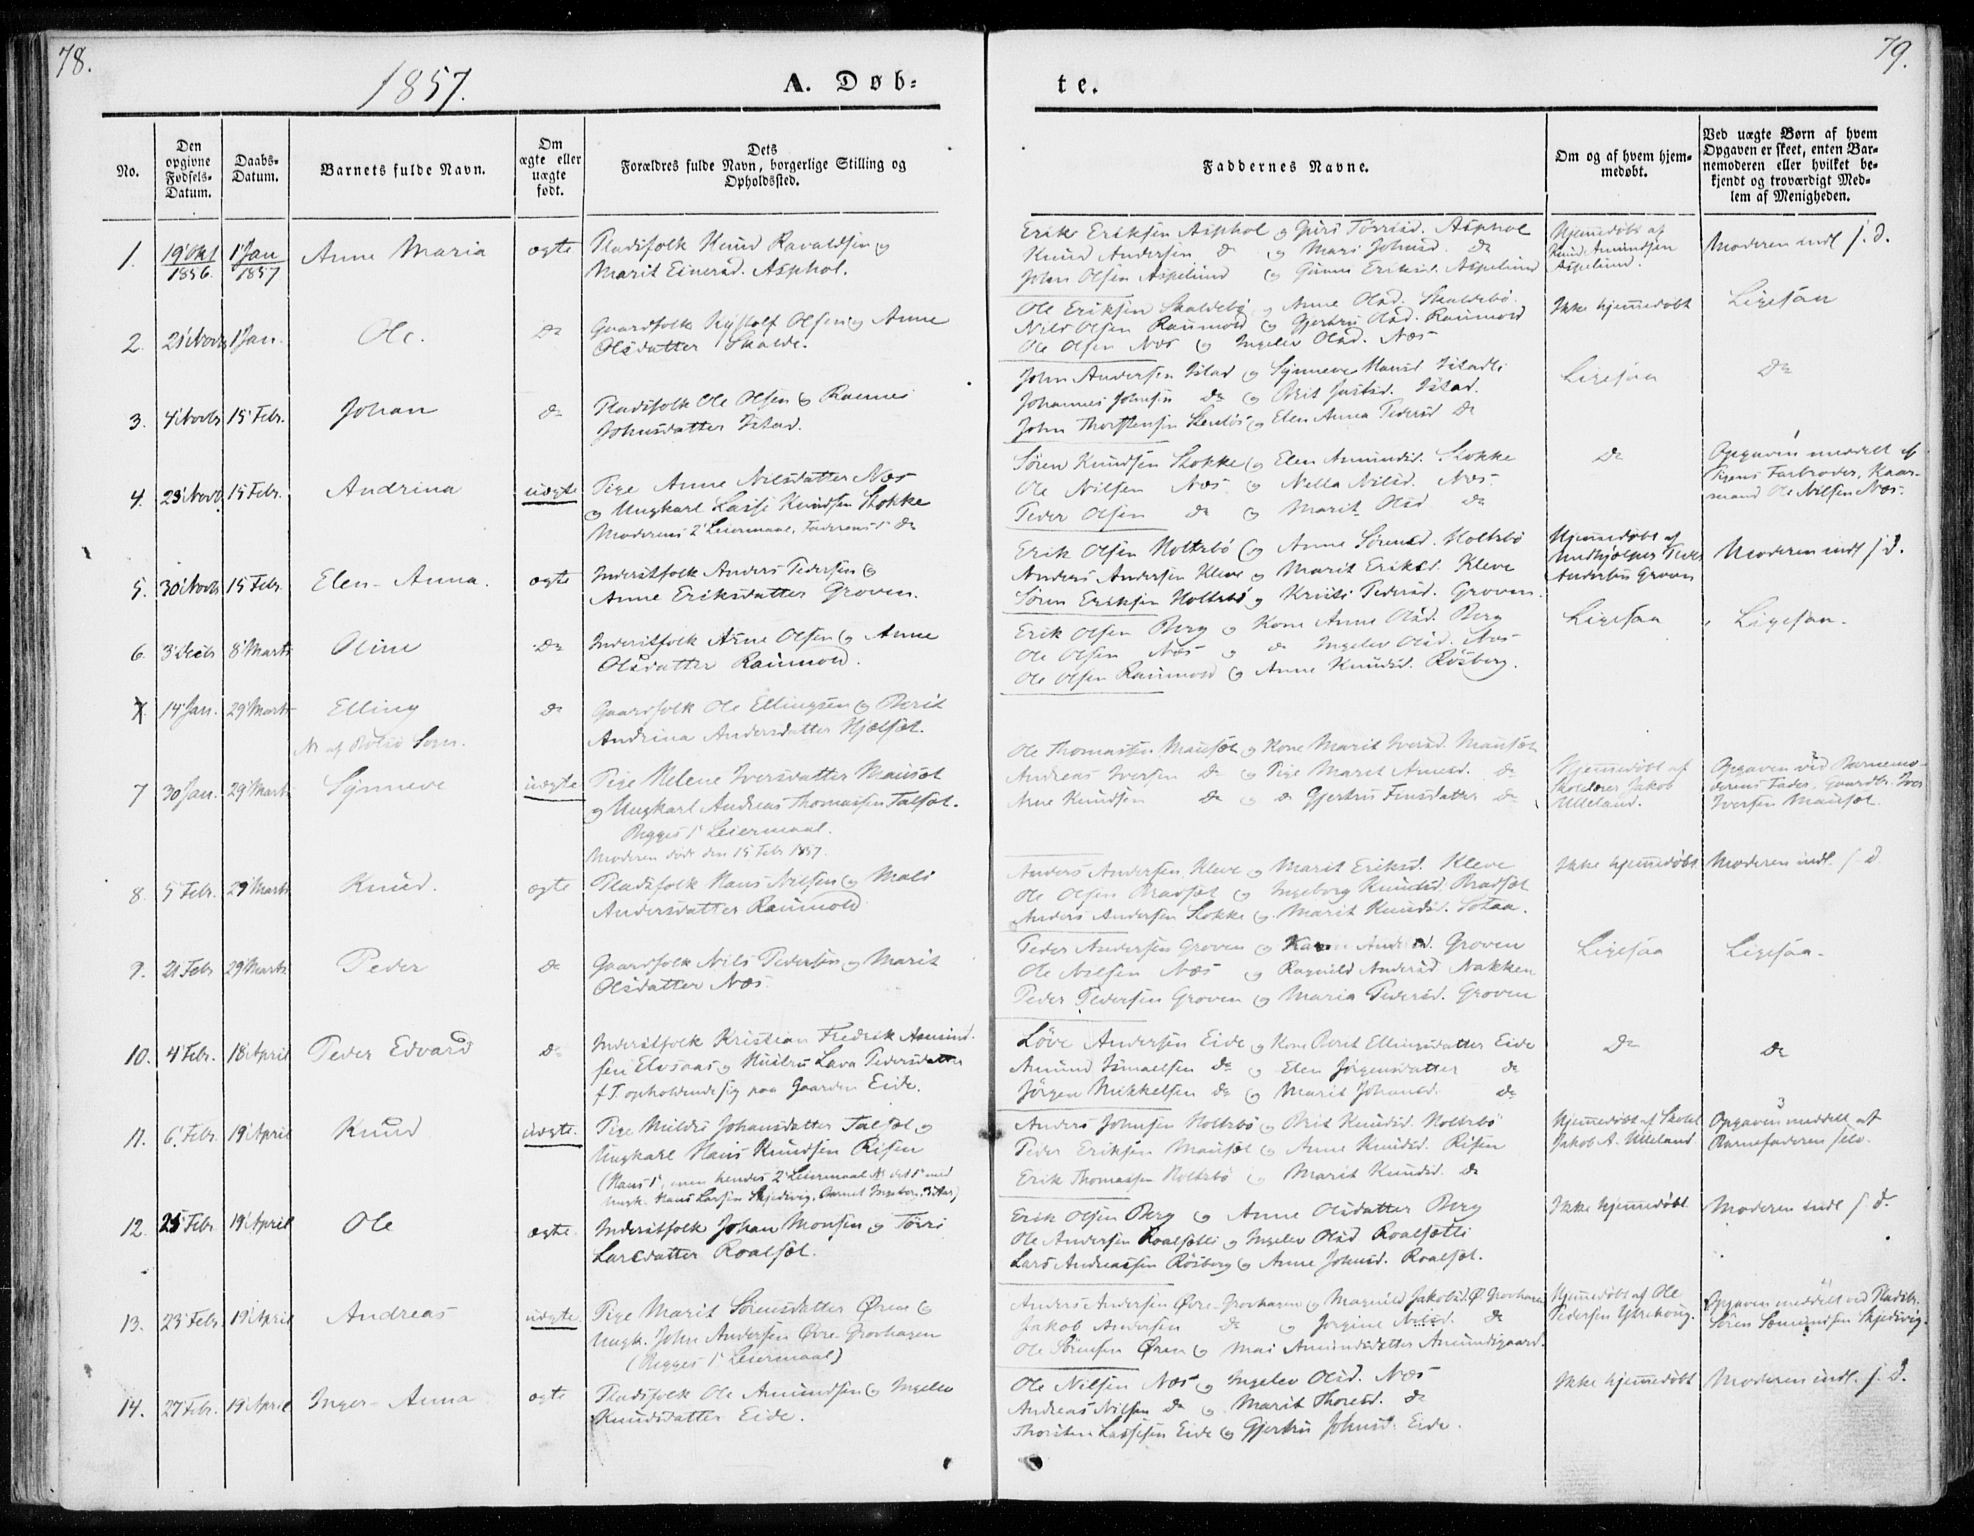 78.
1857.
A. Døb-
te.
79.
No.
Den opgivne Fødsels-Datum.
Daabs-Datum.
Barnets fulde Navn.
Om ægte eller uægte født.
Dets Forældres fulde Navn, borgerlige Stilling og Opholdssted.
Faddernes Navne.
Om og af hvem hjem-medøbt.
Ved uægte Børn af hvem Opgaven er skeet, enten Bar-nemoderen eller hvilket be-kjendt og troværdigt Med-lem af Menigheden.
1. 19 Okt 1856 1 Jan 1857 Anne Maria ægte Pladsfolk Knud Ravaldsen og
Marit Einersd. Asphol.
Erik Eriksen Asphol og Guri Tørrisd. Asphol
Knud Andersen do og Mari Johnsd. do
John Olsen Aspelund og Gunni Eriksd. Aspelund
Hjemmedøbt af
Knud Amundsen
Aspelund.
Moderen indl f. d.
2. 21 Novbr 1 Jan. Ole. do Gaardfolk Olsen og Anne
Olsdatter Skalde.
Ole Eriksen Skaldebø og Anne Olsd. Skaldebø.
Nils Olsen Raumold og Gjertru Olsd. Raumold
Ole Olsen Næs og Ingelev Olsd. Næs
Ikke hjemmedøbt
Ligesaa
3. 4 Novbr 15 Febr. Johan do Pladsfolk Ole Olsen og
Johnsdatter Istad.
John Andersen Istad og Synneve Hansd Istadli
Johannes Johnsen do og Brit Istad.
John Thorstensen og Elen Anna Pedersd do
Ligesaa
do
4. 23 Novb. 15 Febr. Andrina uægte Pige Anne Nilsdatter Næs
og Ungkarl Lasse Knudsen Stokke
Moderens 2' Leiermaal, Faderens 1' do
Søren Knudsen Stokke og Elen Amundsd. Stokke
Ole Nilsen Næs og Nella Nilsd. Næs.
Peder Olsen do og Marit Olsd do
do
Opgaven meddelt af
Pigens Farbroder, Kaar-
mand Ole Nilsen Næs.
5. 30 Novbr 15 Febr. Elen-Anna. ægte Inderstfolk Anders Pedersen og
Anne Eriksdatter Groven.
Erik Olsen Holtebø og Anne Sørensd. Holtebø
Anders Andersen Kleve og Marit Eriksd. Kleve
Søren Eriksen Holtebø og Kristi Pedersd. Groven.
Hjemmedøbt af
Medhjelper Peder
Andersen Groven
Moderen indl f d.
6. 3 Decbr 8 Marts Oline do Inderstfolk Arne Olsen og Anne
Olsdatter Raumold.
Erik Olsen Berg og Kone Anne Olsd. Berg
Ole Olsen Næs og do Ingelev Olsd. Næs
Ole Olsen Raumold og Anne Knudsd. Røsberg.
Ligesaa
Ligesaa.
7. 14 Jan. 29 Marts Elling do Gaardfolk Ole Ellingsen og Berit
Andrina Andersdatter Hjelset.
N. af Bolsø Sogn.
7 30 Jan. 29 Marts Synneve uægte Pige Helene Iversdatter Mauset
og Ungkarl Andreas Thomassen Talset.
Begges 1' Leiermaal.
Moderen død den 15 Febr 1857.
Ole Thomassen Mauset og Kone Marit Iversd. Mauset
Andreas Iversen do og Pige Marit Arnesd. do
Arne Knudsen do og do Gjertru Finsdatter do
Hjemmedøbt af
Skolelærer Jakob
Ulleland.
Opgaven ved Barnemo-
derens Fader, Gaardbr. Iver
Iversen Mauset.
8. 5 Febr. 29 Marts Knud. ægte Pladsfolk Hans Nilsen og Mali
Andersdatter Raumold
Anders Andersen Kleve og Marit Eriksd. Kleve
Ole Olsen Bradset og Ingeborg Knudsd. Bradset
Anders Andersen Stokke og Marit Knudsd. Sotaa.
Ikke hjemmedøbt
Moderen indl. f d.
9. 21 Febr 29 Marts Peder do Gaardfolk Nils Pedersen og Marit
Olsdatter Næs.
Peder Andersen Groven og Karen Andersd. Groven
Ole Nilsen Næs og Ragnild Andersd Nakken
Peder Pedersen Groven og Maria Pedersd. Groven
Ligesaa
Ligesaa.
10. 4 Febr. 18 April Peder Edvard do Inderstfolk Kristian Fredrik Asmund-
sen Elvsaas og Hustru Lava Pedersdatter
f. T. opholdende sig paa Gaarden Eide.
Løve Andersen Eide og Kone Berit Ellingsdatter Eide
Amund Ismaelsen do og Elen Jørgensdatter do
Jørgen Mikkelsen do og Marit Johansd. do
do
do
11. 6. Febr. 19 April Knud uægte. Pige Mildri Johansdatter Talset og
Ungkarl Hans Knudsen Risen
(Hans 1', men hendes 2' Leiermaal. N. det 1' med
Ungk. Hans Larsen Skjedvig, Barnet Ingeborg, 3 Aar)
Anders Johnsen Holtebø og Brit Knudsd. Holtebø
Peder Eriksen Mauset og Anne Knudsd. Risen
Erik Thomassen Holtebø og Marit Knudsd. do
Hjemmedøbt af Skolel.
Jakob A. Ulleland
Opgaven meddelt af
Barnefaderen selv.
12. 25 Febr. 19 April Ole ægte. Inderstfolk Johan Monsen og Tørri
Larsdatter Roalset.
Erik Olsen Berg og Anne Olsdatter Berg
Ole Andersen Roalsetli og Ingelev Olsd Roalsetli
Lars Andreassen Røsberg og Anne Johnsd. Roalset.
Ikke hjemmedøbt
Moderen indl f d.
13. 23 Febr. 19 April Andreas uægte. Pige Marit Sørensdatter Øren og
Ungk. John Andersen Øvre Grovhagen
(Begges 1' Leiermaal)
Anders Andersen Øvre-Grovhagen og Magnild Jakobsd. Ø. Grovhagen
Jakob Andersen do og Jorgine Nilsd. do
Ole Sørensen Øren og Mari Amundsdatter Amundsgaard.
Hjemmedøbt af Ole
Pedersen Ytrehoug.
Opgaven meddelt ved Pladsbr.
Søren Skjedvig.
14. 27 Febr. 19 April Inger-Anna ægte Pladsfolk Ole Amundsen og Ingelev
Knudsdatter Eide.
Ole Nilsen Næs og Ingelev Olsd. Næs
Andreas Nilsen do og Marit Thoresd. do
Thorsten Lassesen Eide og Gjertru Johnsd. Eide.
Ikke hjemmedøbt
Moderen indl. f. d.